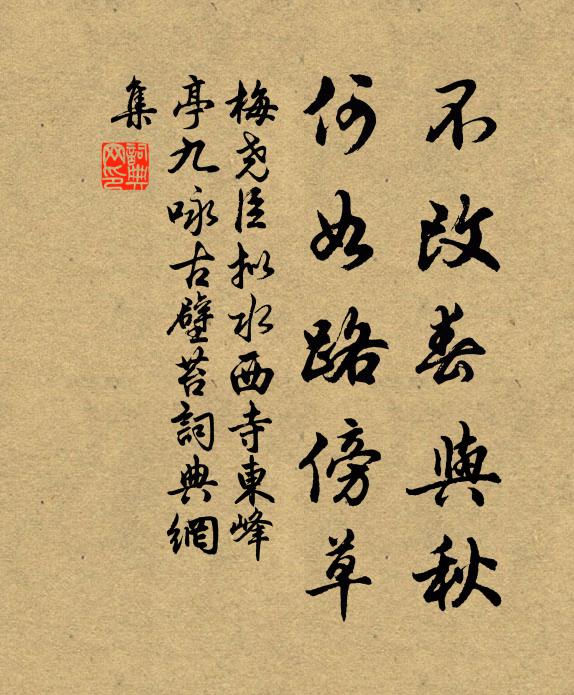 不改春與秋
何如路傍草
梅尧臣拟水西寺東峰
亭九咏古壁苔詞典網
集
詞典
网印